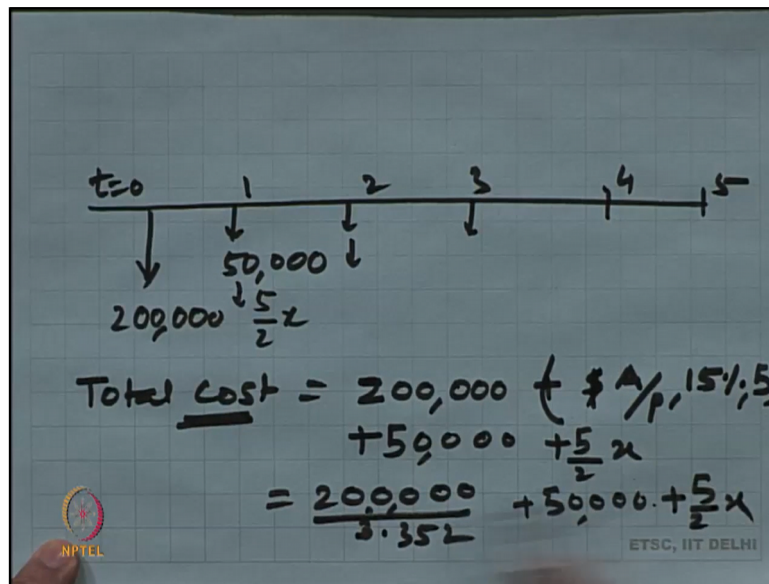 t=0 1 2 3 4 5
50,000
200,000 5/2 x
Total cost = 200,000 ( $ A/p, 15%, 5
+50,000 + 5/2 x
= 200,000/3.352 + 50,000. + 5/2 x
NPTEL
ETSC, IIT DELHI